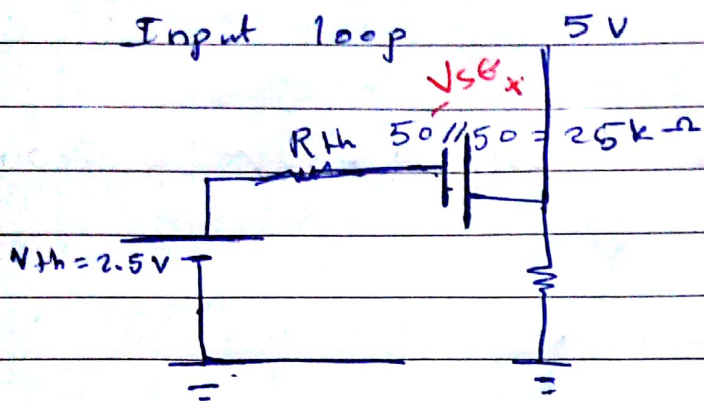 Input loop 5 V
VSG x
Rth 50//50 = 25k Ω
Vth = 2.5 V